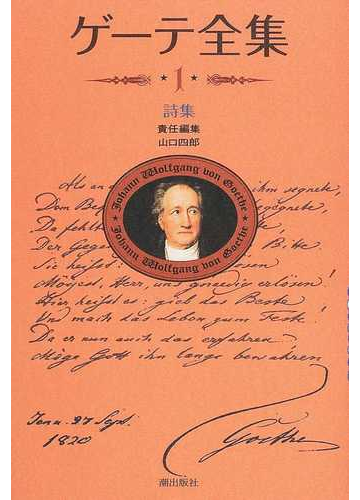 ゲーテ全集
★1★
詩集
責任編集
山口四郎
Johann Wolfgang von Goethe
Johann Wolfgang von Goethe
Als an ihm segnete,
Dem gegnete,
Da fehlt
Der Gegen Bitte.
Sie heisst:
Mögest, Herr, uns gnädig erlösen!
Hier heisst es: gieb das Beste
Und mach das Leben zum Feste!
Da er nun auch das erfahren,
Möge Gott ihn lange bewahren
Jena. 27 Sept.
1820
Goethe
潮出版社